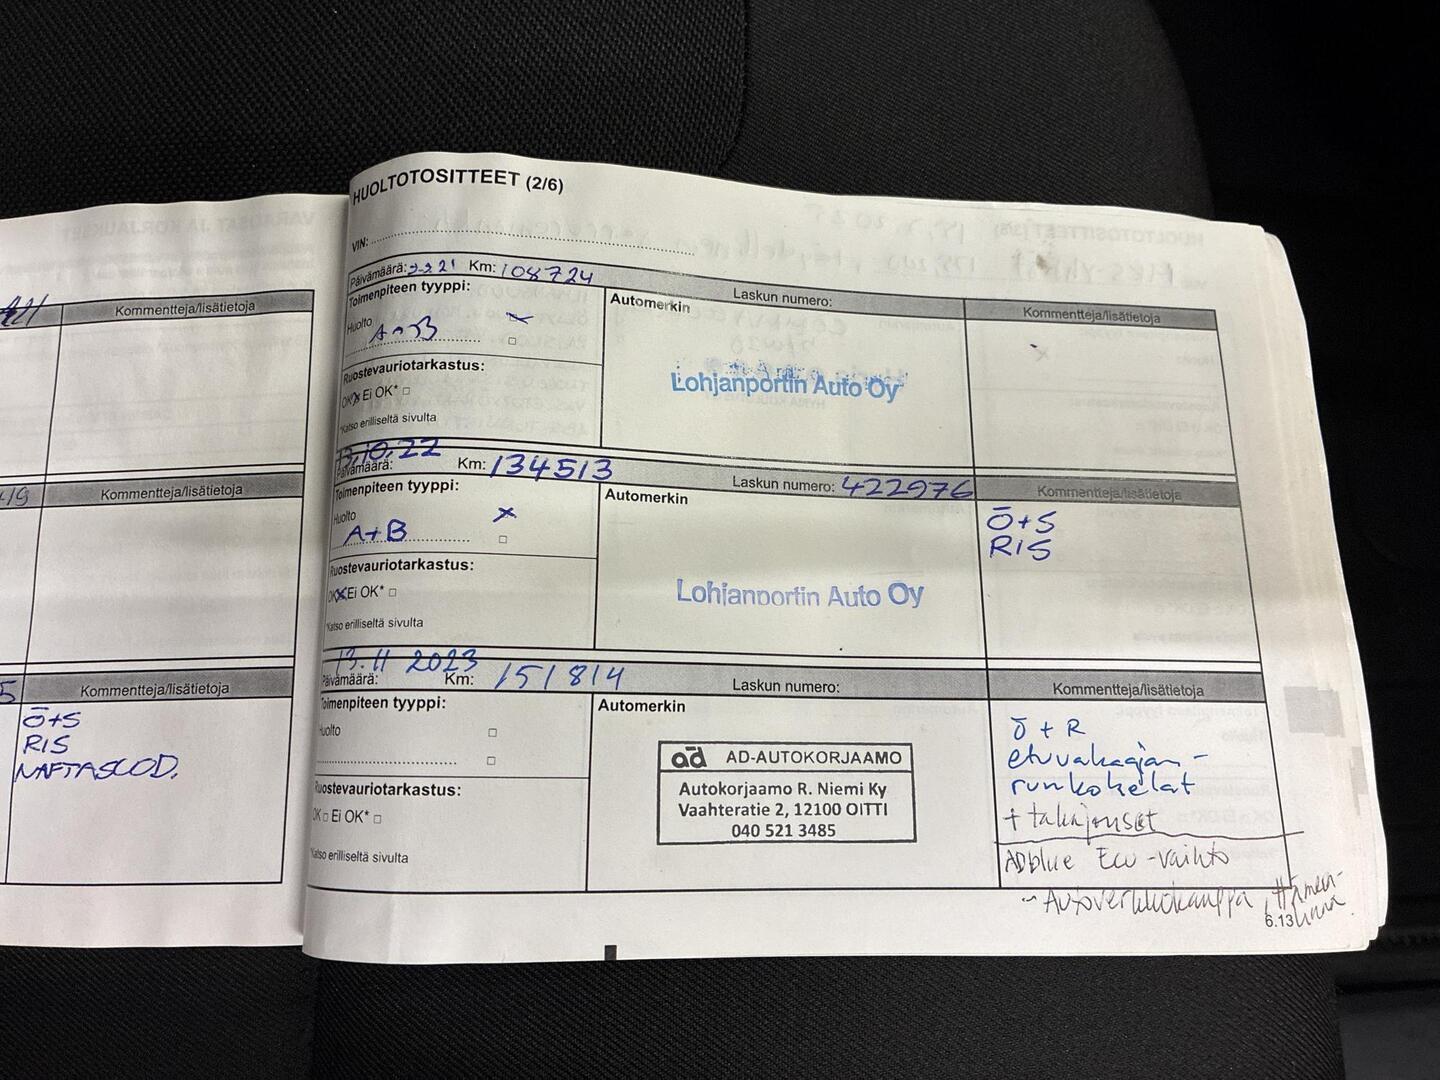 Kommentteja/lisätietoja
Kommentteja/lisätietoja
Kommentteja/lisätietoja
Ō+S
RIS
NAFTASUOD.
HUOLTOTOSITTEET (2/6)
VIN:
Päivämäärä: Km: 108724 Laskun numero:
Toimenpiteen tyyppi: Automerkin Kommentteja/lisätietoja
Huolto
Ruostevauriotarkastus:
OK Ei OK*
*Katso erilliseltä sivulta
Lohjanportin Auto Oy
13.10.22
Päivämäärä: Km: 134513 Laskun numero: 422976 Kommentteja/lisätietoja
Toimenpiteen tyyppi: Automerkin
Huolto
A+B
Ruostevauriotarkastus:
OK Ei OK*
*Katso erilliseltä sivulta
Lohjanportin Auto Oy
Ō+S
RIS
13.11 2023
Päivämäärä: Km: 151814 Laskun numero: Kommentteja/lisätietoja
Toimenpiteen tyyppi: Automerkin
Huolto
Ruostevauriotarkastus:
OK Ei OK*
*Katso erilliseltä sivulta
ad AD-AUTOKORJAAMO
Autokorjaamo R. Niemi Ky
Vaahteratie 2, 12100 OITTI
040 521 3485
Ō + R
etuvakaajan-
runkohelat
+ takajouset
ADblue Ecu-vaihto
~ Autoverkkokauppa, Hämeen-
linna
6.13